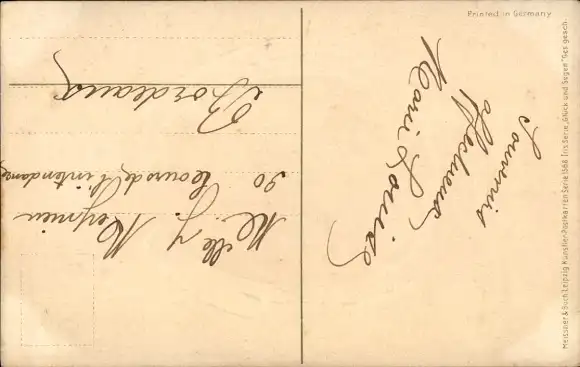 Printed in Germany
Souvenirs
affectueux
Marie Louise
Melle
90 cours de l'intendance
Bordeaux
Meissner & Buch Leipzig Künstler-Postkarten Serie 1568 Iris Serie „Glück und Segen" Ges. gesch.